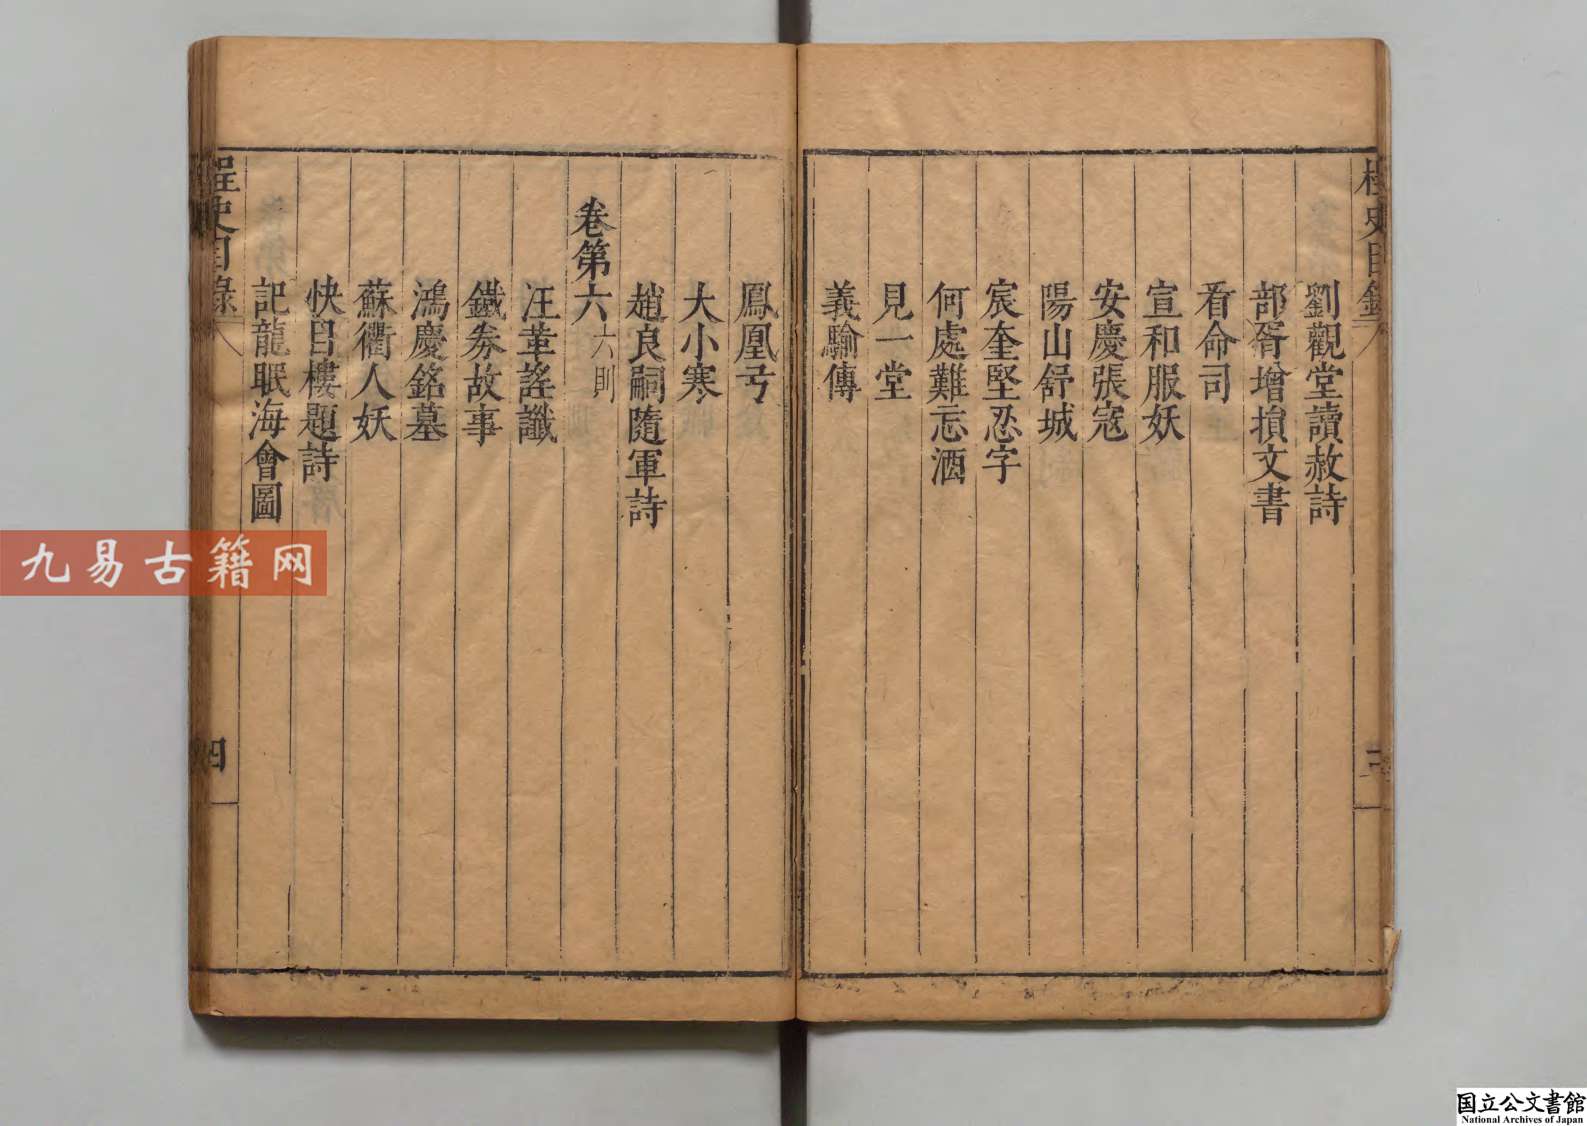 桯史目錄
三
劉觀堂讀赦詩
部胥增損文書
看命司
宣和服妖
安慶張寇
陽山舒城
宸奎堅忍字
何處難忘酒
見一堂
義騟傳
鳳凰弓
大小寒
趙良嗣隨軍詩
卷第六 六則
汪革謠讖
鐵劵故事
鴻慶銘墓
蘇衢人妖
快目樓題詩
記龍眠海會圖
桯史目錄
四
九易古籍网
国立公文書館
National Archives of Japan